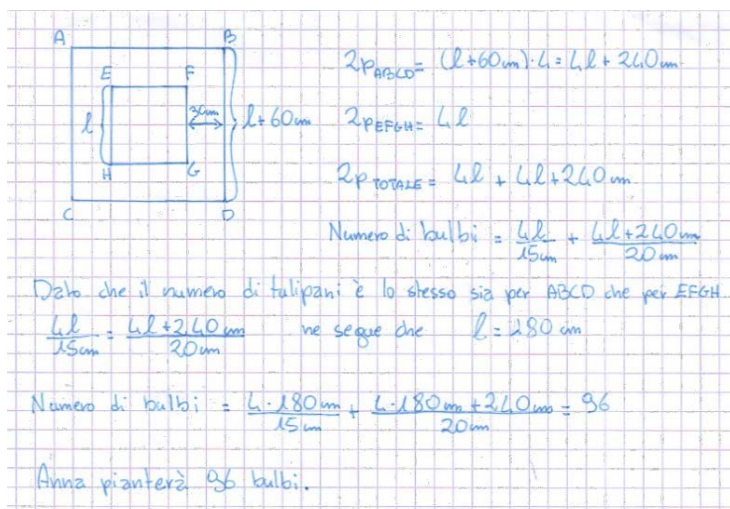 A B
2p ABCD = (l+60cm)·4 = 4l+240cm
E F
30cm
l
l+60cm
2p EFGH = 4l
H G
2p TOTALE = 4l + 4l+240cm
C D
Numero di bulbi = 4l/15cm + 4l+240cm/20cm
Dato che il numero di tulipani è lo stesso sia per ABCD che per EFGH
4l/15cm = 4l+240cm/20cm ne segue che l = 180 cm
Numero di bulbi = 4·180cm/15cm + 4·180cm+240cm/20cm = 96
Anna pianterà 96 bulbi.